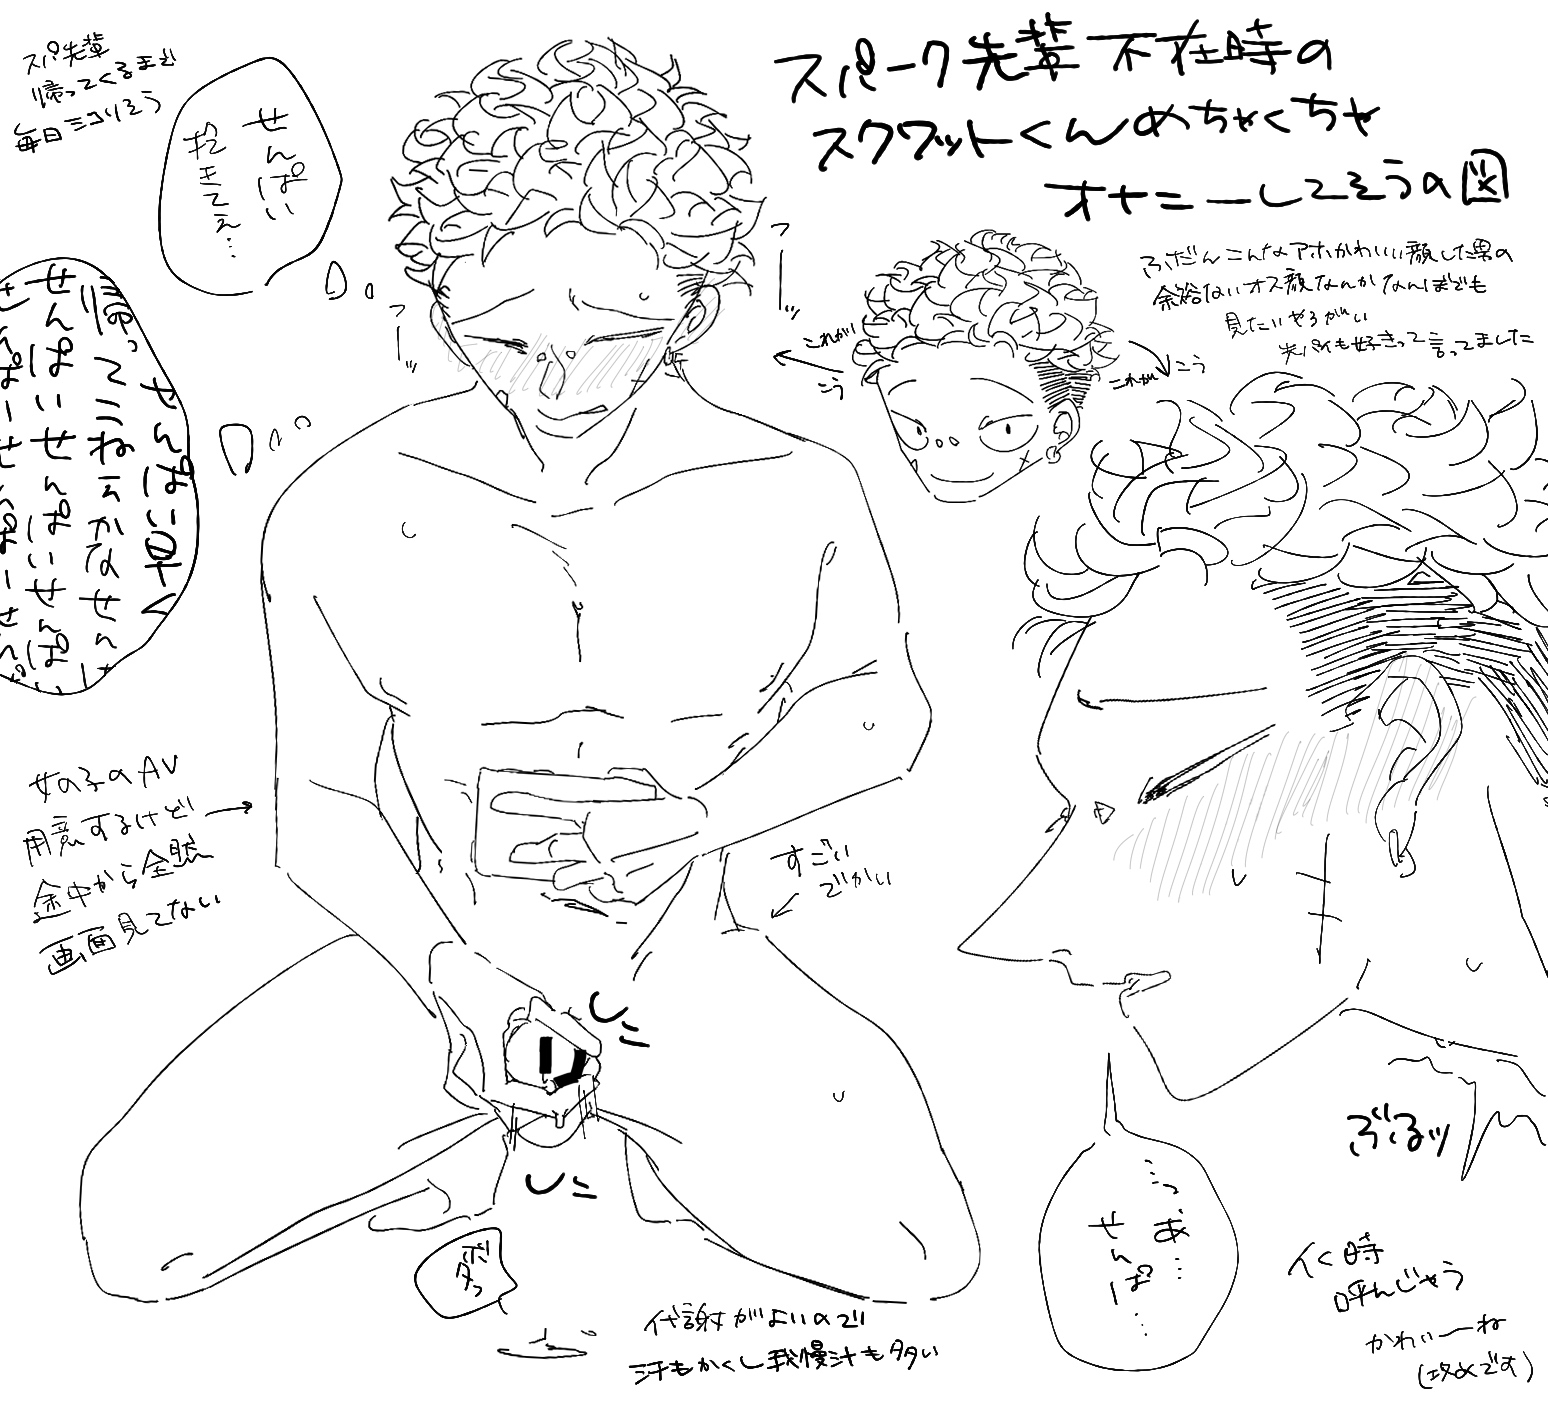 スパーク先輩不在時の
スクワットくんめちゃくちゃ
オナニーしてそうの図
スパ先輩
帰ってくるまで
毎日シコりそう
せんぱい
抱きてえ…
せんぱい早く
帰ってこねえかなせん
せんぱいせんぱいせんぱい
ふだんこんなアホかわいい顔した男の
余裕ないオス顔なんかなんぼでも
見たいやろがい
先パイも好きって言ってました
これが
こう
これが
こう
女の子のAV
用意するけど
途中から全然
画面見てない
すごい
でかい
しこ
しこ
ボタっ
代謝がよいので
汗もかくし我慢汁も多い
…っ
あ…
せんぱ…
ぶるッ
イく時
呼んじゃう
かわいーね
(攻めです)